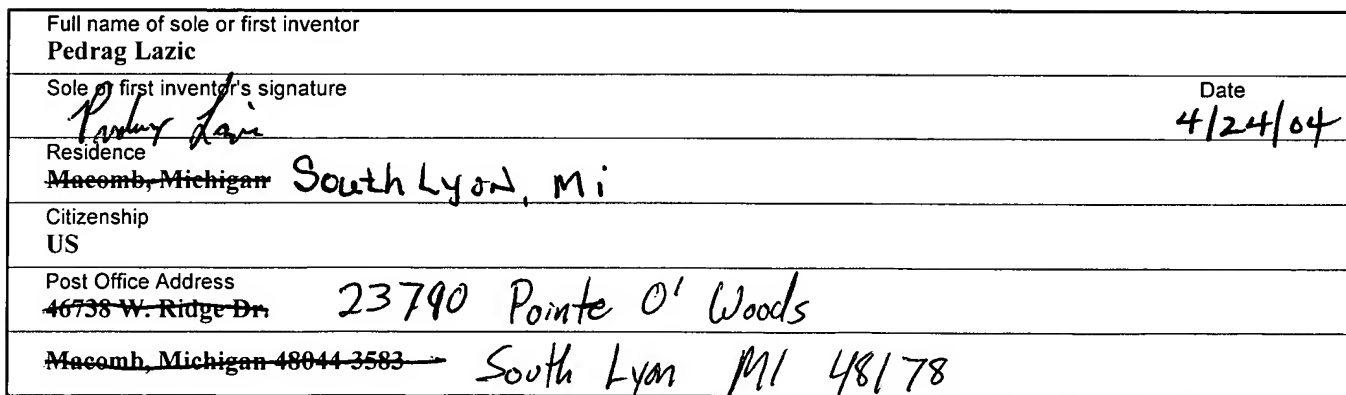 Full name of sole or first inventor
Pedrag Lazic
Sole or first inventor's signature Date
4/24/04
Residence
Macomb, Michigan South Lyon, Mi
Citizenship
US
Post Office Address
46738 W. Ridge Dr. 23790 Pointe O' Woods
Macomb, Michigan 48044-3583 South Lyon MI 48178